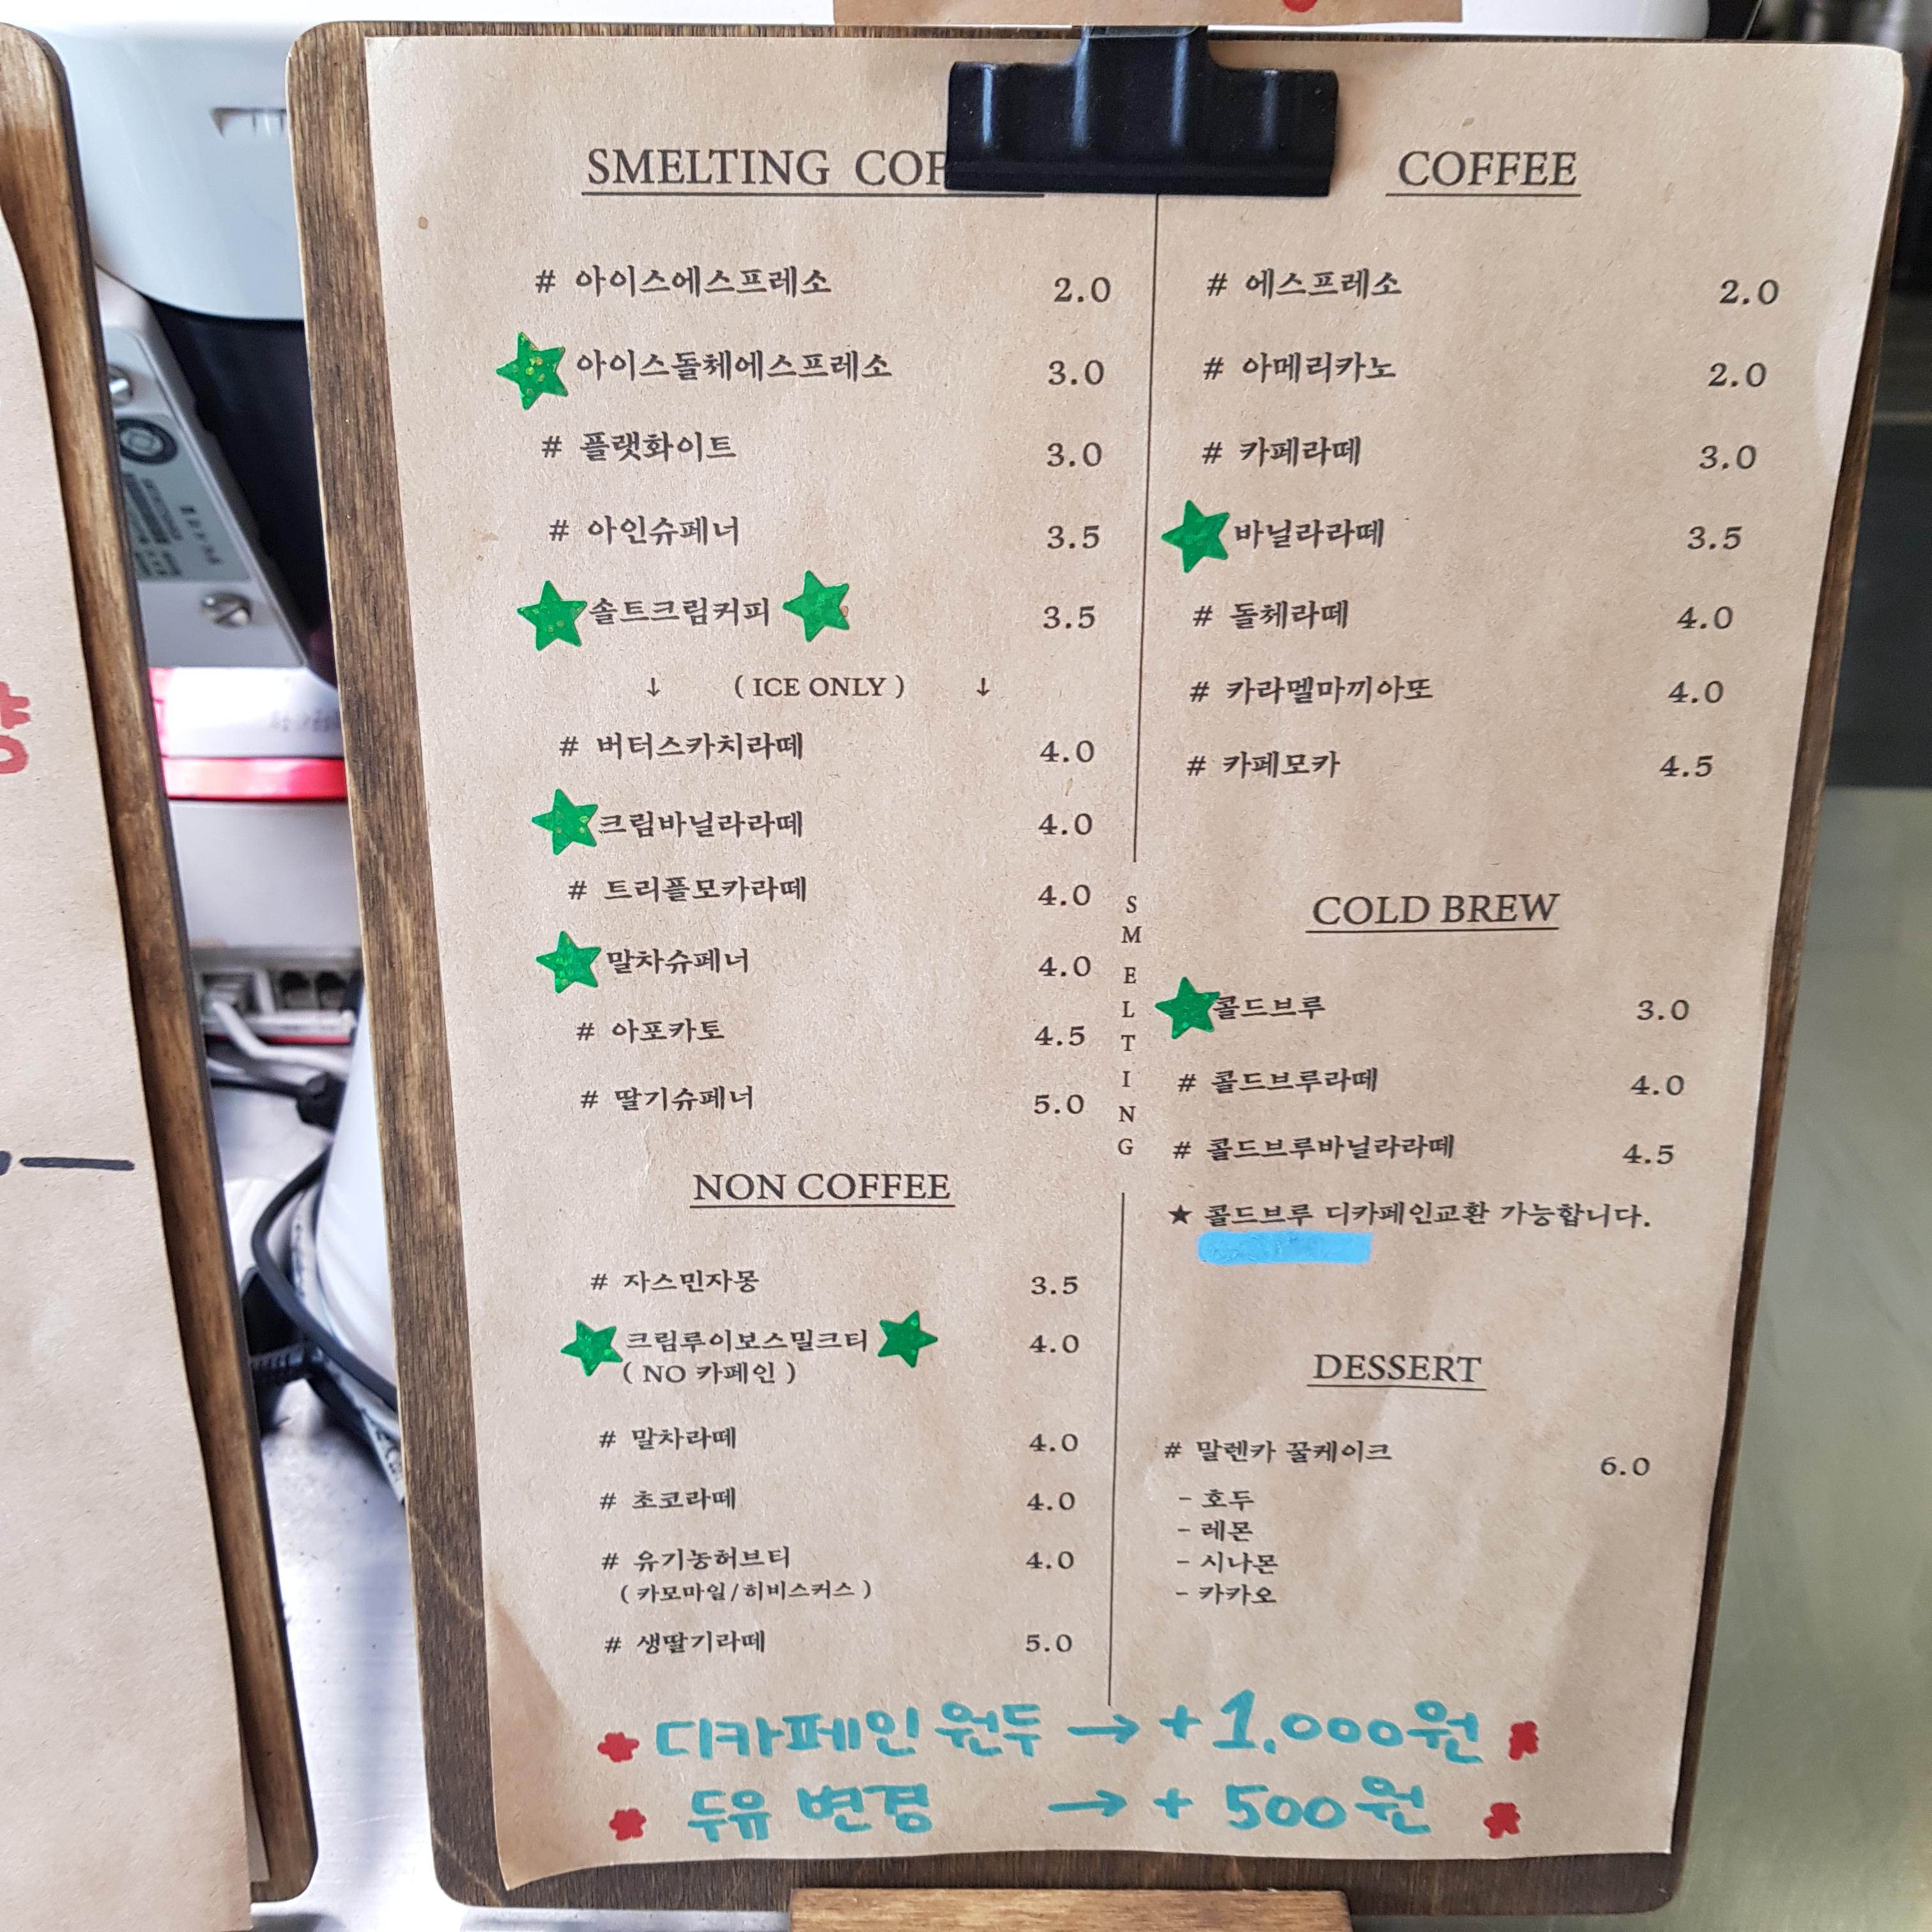 SMELTING COF
# 아이스에스프레소 2.0
아이스돌체에스프레소 3.0
# 플랫화이트 3.0
# 아인슈페너 3.5
솔트크림커피 3.5
↓ ( ICE ONLY ) ↓
# 버터스카치라떼 4.0
크림바닐라라떼 4.0
# 트리플모카라떼 4.0
말차슈페너 4.0
# 아포카토 4.5
# 딸기슈페너 5.0
NON COFFEE
# 자스민자몽 3.5
크림루이보스밀크티 4.0
( NO 카페인 )
# 말차라떼 4.0
# 초코라떼 4.0
# 유기농허브티 4.0
( 카모마일/히비스커스 )
# 생딸기라떼 5.0
SMELTING
COFFEE
# 에스프레소 2.0
# 아메리카노 2.0
# 카페라떼 3.0
바닐라라떼 3.5
# 돌체라떼 4.0
# 카라멜마끼아또 4.0
# 카페모카 4.5
COLD BREW
콜드브루 3.0
# 콜드브루라떼 4.0
# 콜드브루바닐라라떼 4.5
★ 콜드브루 디카페인교환 가능합니다.
DESSERT
# 말렌카 꿀케이크 6.0
- 호두
- 레몬
- 시나몬
- 카카오
디카페인 원두 → + 1,000원
두유 변경 → + 500원